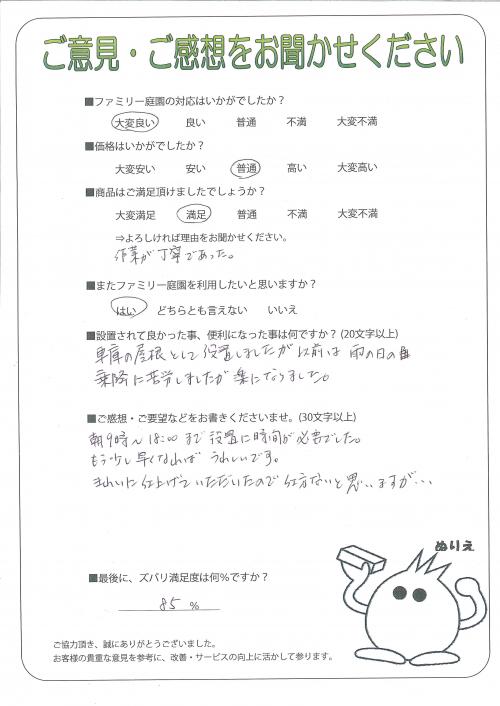 ご意見・ご感想をお聞かせください
■ファミリー庭園の対応はいかがでしたか？
大変良い 良い 普通 不満 大変不満
■価格はいかがでしたか？
大変安い 安い 普通 高い 大変高い
■商品はご満足頂けましたでしょうか？
大変満足 満足 普通 不満 大変不満
⇒よろしければ理由をお聞かせください。
作業が丁寧であった。
■またファミリー庭園を利用したいと思いますか？
はい どちらとも言えない いいえ
■設置されて良かった事、便利になった事は何ですか？(20文字以上)
車庫の屋根として設置しましたが以前は雨の日の
乗降に苦労しましたが楽になりました。
■ご感想・ご要望などをお書きくださいませ。(30文字以上)
朝9時〜18:00まで設置に時間が必要でした。
もう少し早くなればうれしいです。
きれいに仕上げていただいたので仕方ないと思いますが...
ぬりえ
■最後に、ズバリ満足度は何％ですか？
85 %
ご協力頂き、誠にありがとうございました。
お客様の貴重な意見を参考に、改善・サービスの向上に活かして参ります。